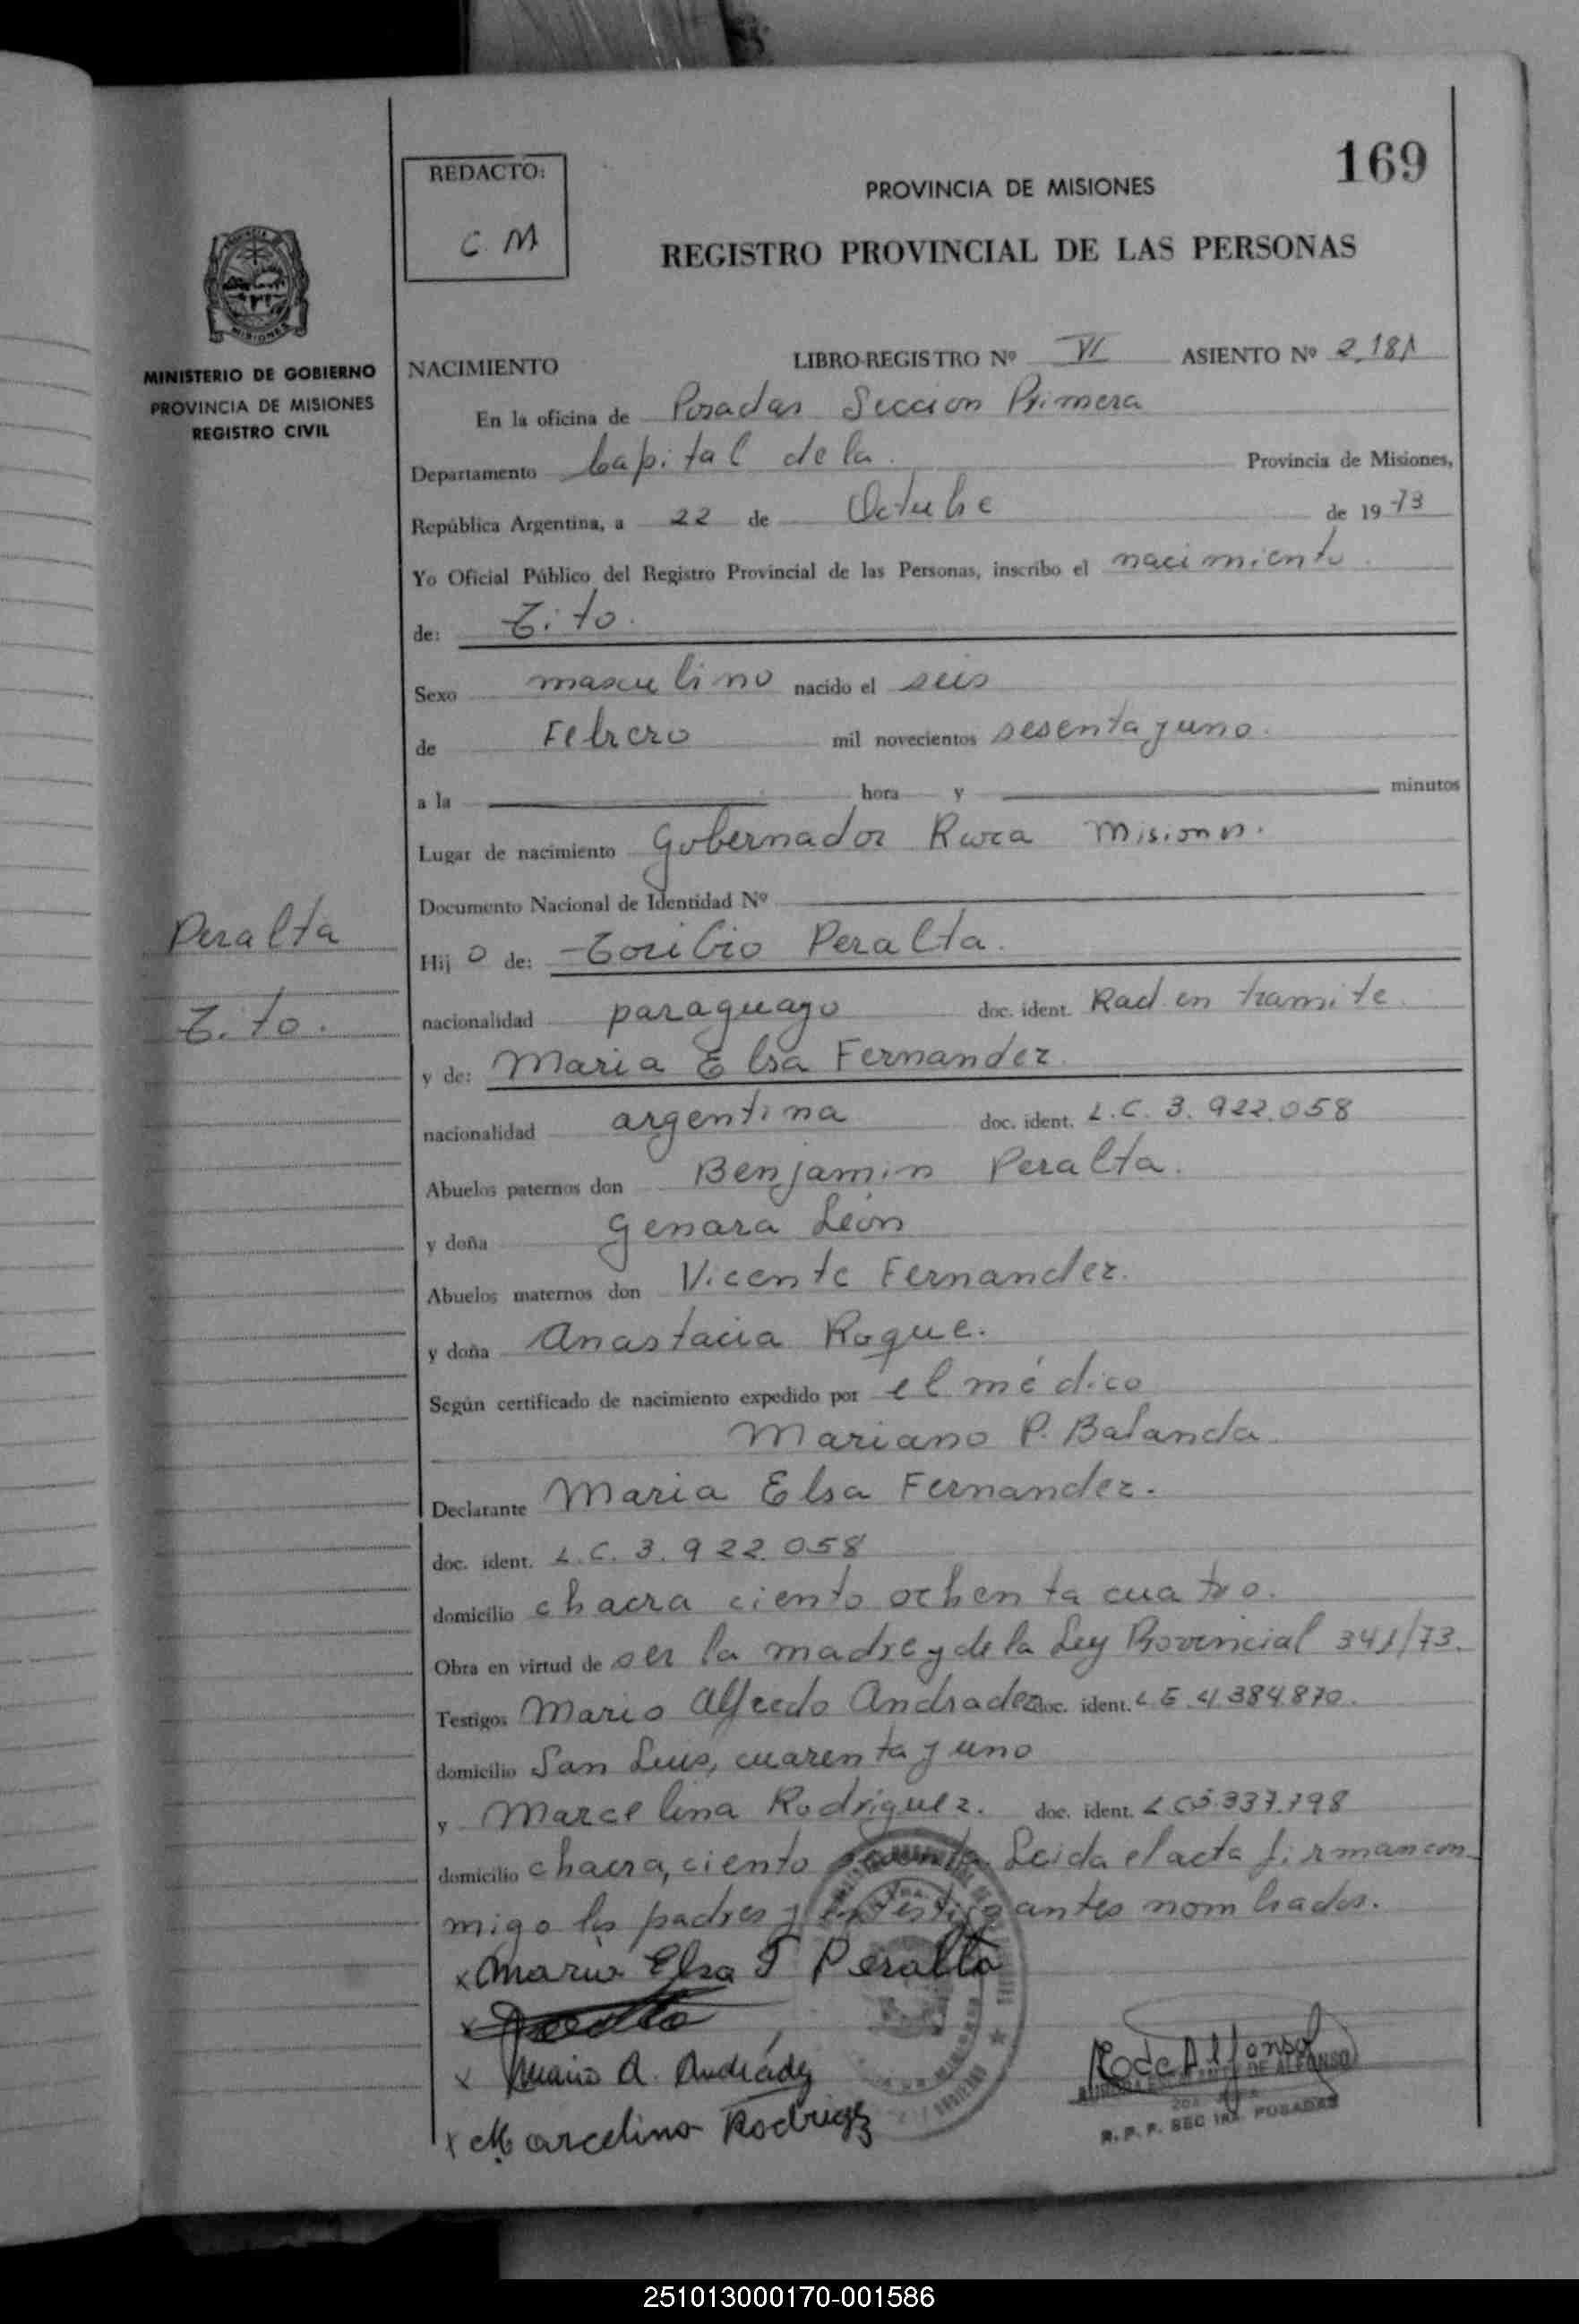 169
REDACTO:
C. M
PROVINCIA DE MISIONES
REGISTRO PROVINCIAL DE LAS PERSONAS
MISIONES
MINISTERIO DE GOBIERNO
PROVINCIA DE MISIONES
REGISTRO CIVIL
NACIMIENTO LIBRO-REGISTRO Nº VI ASIENTO Nº 2.181
En la oficina de Posadas Seccion Primera
Departamento Capital de la. Provincia de Misiones,
República Argentina, a 22 de Octubre de 1973
Yo Oficial Público del Registro Provincial de las Personas, inscribo el nacimiento.
de: Tito.
Sexo masculino nacido el seis
de Febrero mil novecientos sesenta y uno.
a la hora y minutos
Lugar de nacimiento Gobernador Roca Misiones.
Documento Nacional de Identidad Nº
Peralta
Tito.
Hijo de: Toribio Peralta.
nacionalidad paraguayo doc. ident. Rad. en tramite
y de: Maria Elsa Fernandez.
nacionalidad argentina doc. ident. L.C. 3.922.058
Abuelos paternos don Benjamin Peralta.
y doña Genara León
Abuelos maternos don Vicente Fernandez.
y doña Anastacia Roque.
Según certificado de nacimiento expedido por el médico
Mariano P. Balanda
Declarante Maria Elsa Fernandez.
doc. ident. L.C. 3.922.058
domicilio chacra ciento ochenta cuatro.
Obra en virtud de ser la madre y de la Ley Provincial 341/73.
Testigos Mario Alfredo Andradez doc. ident. L.E. 4.384.870.
domicilio San Luis, cuarenta y uno
y Marcelina Rodriguez. doc. ident. L.C 5.337.798
domicilio chacra, ciento Leida el acta firman con
migo los padres y antes nombrados.
x Maria Elsa F Peralta
x
x Mario A. Andrádez
x Marcelina Rodriguez
Alfonso
DE ALFONSO
R. P. P. SEC 1RA. POSADAS
251013000170-001586